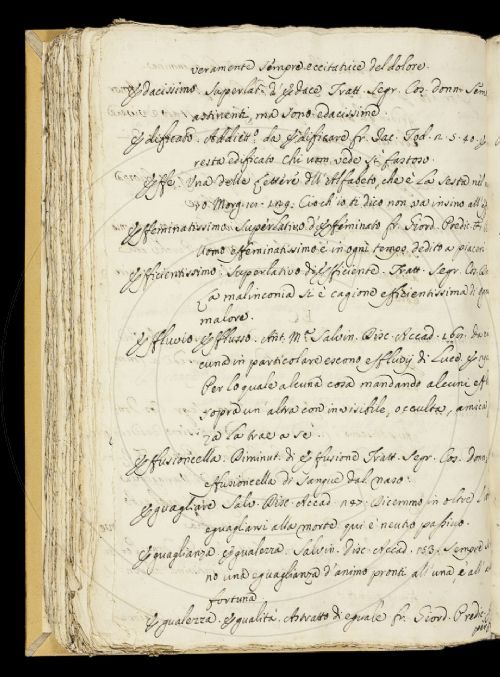 veramente sempre eccitatrice del dolore.
Edacissimo. Superlat. d'Edace Tratt. Segr. Cos. donn. Sem
astinenti, ma sono edacissime
Edificato. Addiett.º da Edificare fr. Iac. Tod. 2. 5. 40. E
resta edificato chi uom vede sì fastoso.
Effe. Una delle Lettere dell'Alfabeto, che è la sesta nel
Morg. Cioch'io ti dico non va insino all'
Effeminatissimo. Superlativo d'Effeminato fr. Giord. Predic.
Uomo effeminatissimo e in ogni tempo dedito a piacer
Efficientissimo. Superlativo di Efficiente. Tratt. Segr. Cos.
La malinconia si è cagione efficientissima di
malore.
Effluvio. Efflusso. Ant. Mº. Salvin. Disc. Accad. 1.
cuna in particolare escono effluvij di Luce, e
Per lo quale alcuna cosa mandando alcuni effl
sopra un altra con invisibile, occulta, amici
za la trae a se.
Effusioncella. Diminut. di Effusione Tratt. Segr. Cos. Donn.
effusioncella di sangue dal naso.
Eguagliare Salv. Disc. Accad. Dicemmo in oltre
eguagliarsi alla morte qui è neutro passivo.
Eguaglianza. Egualezza. Salvin. Disc. Accad. 153. Sempre
no una eguaglianza d'animo pronti all'una, e all'
fortuna
Egualezza. Egualità. Astratto di eguale fr. Giord. Predic.